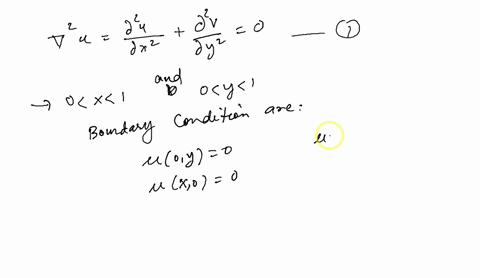 ∇²u = ∂²u/∂x² + ∂²v/∂y² = 0 —— ①
→ 0<x<1 and 0<y<1
Boundary Condition are:
u(0,y)=0
u(x,0)=0
u